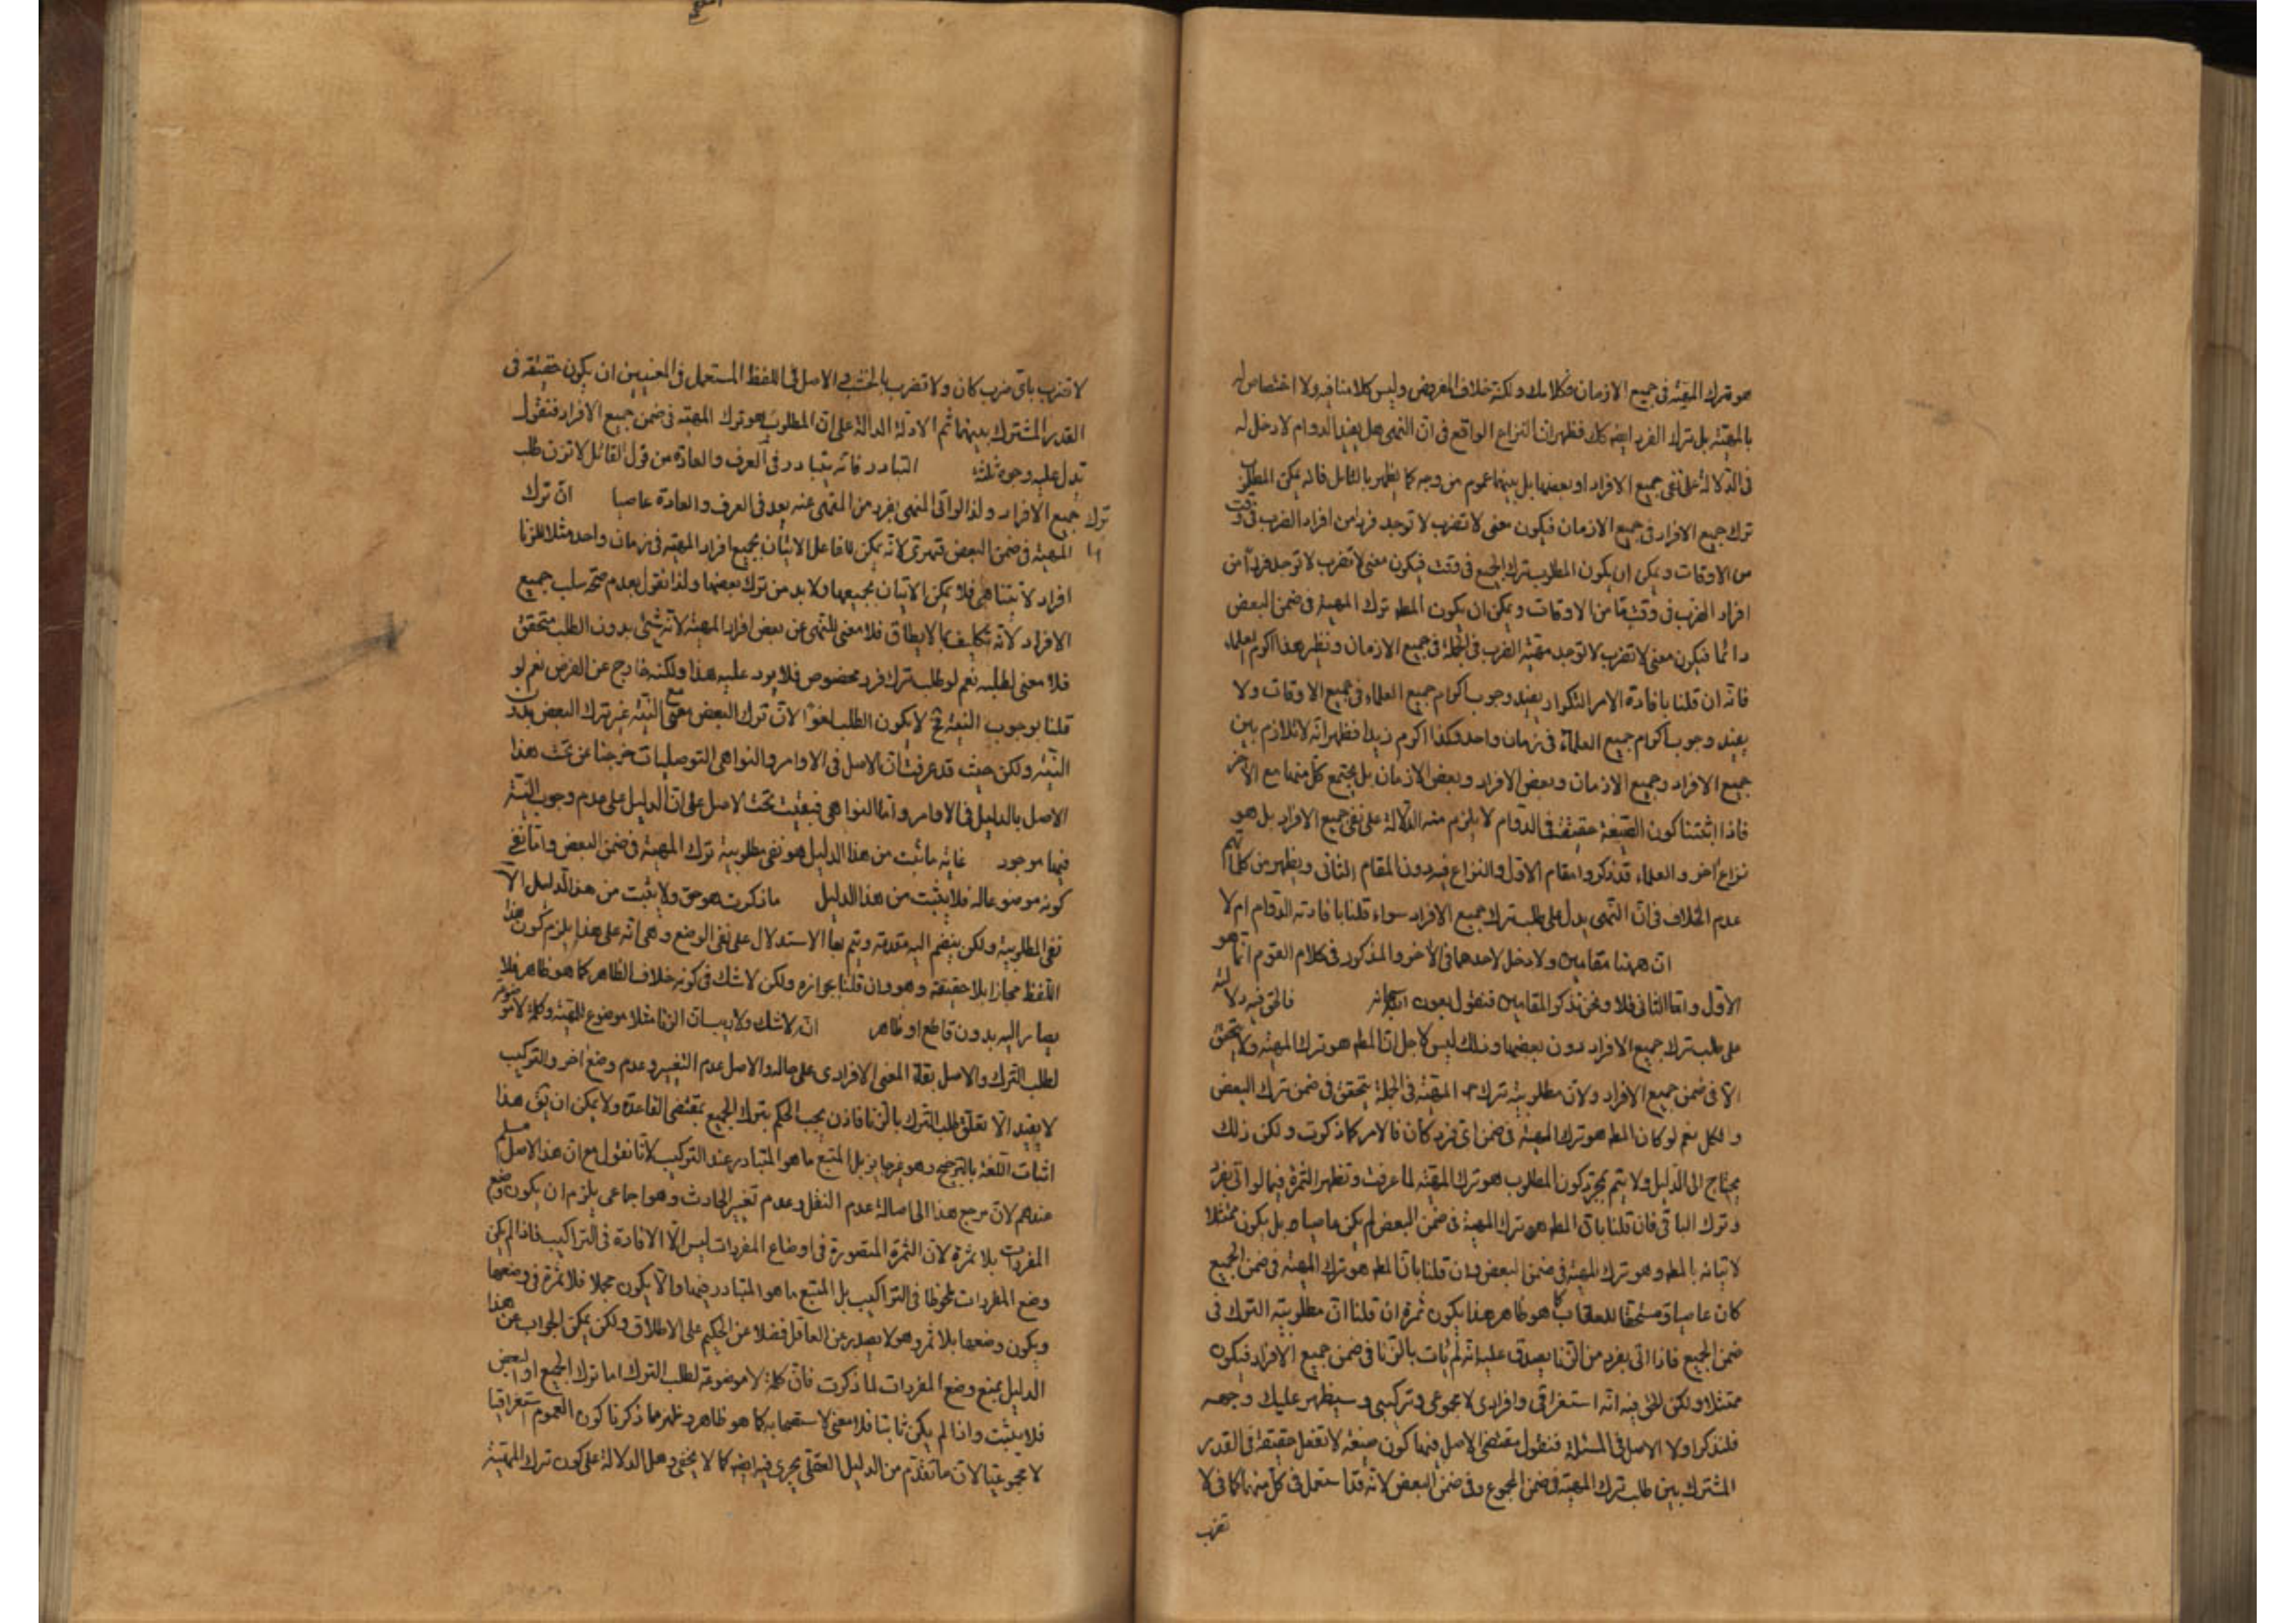 هو ترك المهيّة فى جميع الازمان فكلامك ولكنّه خلاف المفروض وليس كلامنا فيه ولا اختصاص له
بالمهيّة بل ترك الفرد ايضه كك فظهر انّ النزاع الواقع فى انّ النهى هل يفيد الدوام لا دخل له
فى الدلالة على نفى جميع الافراد او بعضها بل بينهما عموم من وجه كما يظهر بالتامل فانه يمكن المطلوب
ترك جميع الافراد فى جميع الازمان فيكون معنى لا تضرب لا توجد فردا من افراد الضرب فى وقت
من الاوقات ويمكن ان يكون المطلوب ترك الجميع فى وقت فيكون معنى لا تضرب لا توجد فردا من
افراد الضرب فى وقت ما من الاوقات ويمكن ان يكون المطه ترك المهية فى ضمن البعض
دائما فيكون معنى لا تضرب لا توجد مهيّة الضرب فى الجملة فى جميع الازمان ونظير هذا اكرم العلماء
فانّه ان قلنا بافادة الامر التكرار يفيد وجوب اكرام جميع العلماء فى جميع الاوقات ولا
يفيد وجوب اكرام جميع العلماء فى زمان واحد وكذا اكرم زيدا فظهر انّه لا تلازم بين
جميع الافراد وجميع الازمان وبعض الافراد وبعض الازمان بل يجتمع كلّ منهما مع الآخر
فاذا اثبتنا كون الصيغة حقيقة فى الدوام لا يلزم منه الدلالة على نفى جميع الافراد بل هو
نزاع اخر والعلماء قد ذكروا مقام الاول والنزاع فيه دون المقام الثانى ويظهر من كلامهم
عدم الخلاف فى انّ النهى يدل على طلب ترك جميع الافراد سواء قلنا بافادته الدوام ام لا
ان ههنا مقامين ولا دخل لاحدهما فى الآخر والمذكور فى كلام القوم انّما هو
الاوّل وامّا الثانى فلا ونحن نذكر المقامين فنقول بعون الله فالحق فيه دلالته
على طلب ترك جميع الافراد دون بعضها وذلك ليس لاجل انّ المطه هو ترك المهيّة ولا يتحقّق
الّا فى ضمن جميع الافراد ولانّ مطلوبيّة ترك المهيّة فى الجملة يتحقق فى ضمن ترك البعض
والكل نعم لو كان المطه هو ترك المهيّة فى ضمن اىّ فرد كان فالامر كما ذكرت ولكن ذلك
يحتاج الى الدّليل ولا يتم بمجرّد كون المطلوب هو ترك المهيّة لما عرفت وتظهر الثمرة فيما لو اتى بفرد
وترك الباقى فان قلنا بانّ المطه هو ترك المهيّة فى ضمن البعض لم يكن عاصيا بل يكون ممتثلا
لاتيانه بالمطه وهو ترك المهيّة فى ضمن البعض وان قلنا بانّ المطه هو ترك المهيّة فى ضمن الجميع
كان عاصيا ومستحقا للعقاب كما هو ظاهر هذا يكون ثمرة ان قلنا انّ مطلوبيّة الترك فى
ضمن الجميع فاذا اتى بفرد من الزنا يصدق عليه انّه لم يات بالزّنا فى ضمن جميع الافراد فيكون
ممتثلا ولكن الحق فيه انّه استغراقى وافرادى لا مجموعى وتركيبى وسيظهر عليك وجهه
فلنذكر اولا الاصل فى المسئلة فنقول مقتضى الاصل فيها كون صيغة لا تفعل حقيقة فى القدر
المشترك بين طلب ترك المهيّة فى ضمن المجموع وفى ضمن البعض لانّه قد استعمل فى كلّ منهما كما فى لا
تضرب
لا تضرب باىّ ضرب كان ولا تضرب بالخشب والاصل فى اللفظ المستعمل فى المعنيين ان يكون حقيقة فى
القدر المشترك بينهما ثم الادلّة الدالّة على انّ المطلوب هو ترك المهيّة فى ضمن جميع الافراد فنقول
تدل عليه وجوه ثلثة التبادر فانّه يتبادر فى العرف والعادة من قول القائل لا تزن طلب
ترك جميع الافراد ولذا لو اتى المنهى بفرد من المنهى عنه يعد فى العرف والعادة عاصيا انّ ترك
المهيّة فى ضمن البعض قهرى لانّه يمكن للفاعل الاتيان بجميع افراد المهيّة فى زمان واحد مثلا للزنا
افراد لا يتناهى فلا يمكن الاتيان بجميعها ولا بد من ترك بعضها ولذا نقول بعدم صحّة سلب جميع
الافراد لانّه تكليف بما لا يطاق فلا معنى للنهى عن بعض افراد المهيّة لانّه شئ بدون الطلب متحقق
فلا معنى لطلبه نعم لو طلب ترك فرد مخصوص فلا يرد عليه هذا ولكنه خارج عن الفرض نعم لو
قلنا بوجوب النيّة ح لا يكون الطلب لغوا لانّ ترك البعض مع النيّة غير ترك البعض بدون
النيّة ولكن حيث قد عرفت انّ الاصل فى الاوامر والنواهى التوصليات خرجنا عن تحت هذا
الاصل بالدليل فى الاوامر وامّا النواهى فبقيت تحت الاصل على انّ الدليل على عدم وجوب النيّة
فيها موجود غاية ما ثبت من هذا الدليل هو نفى مطلوبية ترك المهيّة فى ضمن البعض وامّا نفى
كونه موضوعا له فلا يثبت من هذا الدليل ما ذكرت هو حق ولا يثبت من هذا الدليل الّا
نفى المطلوبية ولكن ينضم اليه مقدمة ويتم بها الاستدلال على نفى الوضع وهى انّه على هذا يلزم كون هذا
اللّفظ مجازا بلا حقيقة وهو وان قلنا بجوازه ولكن لا شك فى كونه خلاف الظاهر كما هو ظاهر فلا
يصار اليه بدون قاطع او ظاهر انّه لا شك ولا ريب انّ الزنا مثلا موضوع للمهيّة وكلمة لا موضوعة
لطلب الترك والاصل بقاء المعنى الافرادى على حاله والاصل عدم التغيير وعدم وضع اخر والتركيب
لا يفيد الّا تعلّق طلب التّرك بالزنا فاذن يجب الحكم بترك الجميع بمقتضى القاعدة ولا يمكن ان يق هذا
اثبات اللّغة بالترجيح وهو غير جايز بل المتبع ما هو المتبادر عند التركيب لانّا نقول مع انّ هذا الاصل مسلم
عندهم لانّ مرجع هذا الى اصالة عدم النقل وعدم تغيير الحادث وهو اجماعى يلزم ان يكون وضع
المفردات بلا ثمرة لانّ الثمرة المتصورة فى اوضاع المفردات ليس الّا الافادة فى التراكيب فاذا لم يكن
وضع المفردات ملحوظا فى التراكيب بل المتبع ما هو المتبادر فيها والّا يكون مجملا فلا ثمرة فى وضعها
ويكون وضعها بلا ثمر وهو لا يصدر عن العاقل فضلا عن الحكيم على الاطلاق ولكن يمكن الجواب عن هذا
الدليل بمنع وضع المفردات لما ذكرت فانّ كلمة لا موضوعة لطلب الترك اما ترك الجميع او البعض
فلا يثبت واذا لم يكن ثابتا فلا معنى لاستصحابه كما هو ظاهر وظهر مما ذكرنا كون العموم استغراقيا
لا مجموعيا لانّ ما تقدّم من الدليل العقلى يجرى فيه ايضه كما لا يخفى وهل الدلالة على كون ترك المهيّة